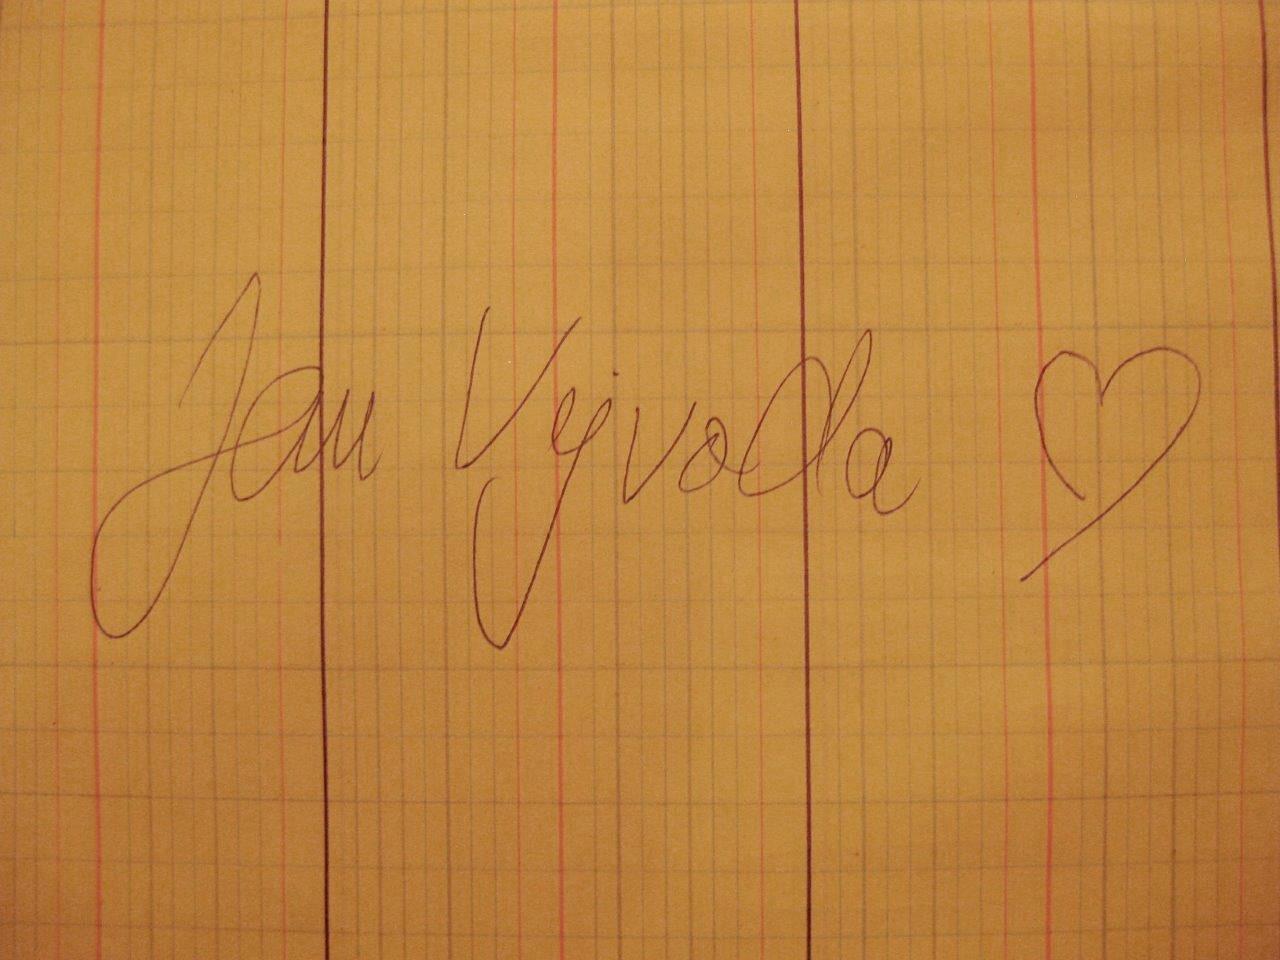 Jan Vyvoda ♡